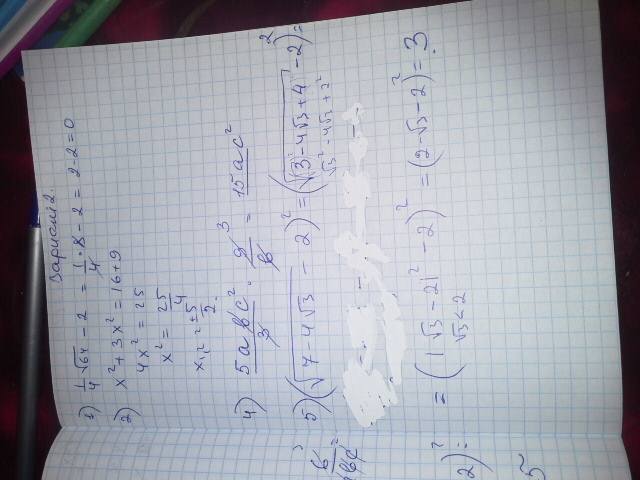 Вариант 2.
1) 1/4 √64 - 2 = 1/4 · 8 - 2 = 2 - 2 = 0
2) x² + 3x² = 16 + 9
4x² = 25
x² = 25/4
x₁,₂ = ±5/2.
4) 5abc²/3 · 9/b = 15ac²
3
5) (√(7 - 4√3) - 2)² = (√(3 - 4√3 + 4) - 2)² =
√3² - 4√3 + 2²
= (|√3 - 2| - 2)² = (2 - √3 - 2)² = 3.
√3 < 2
2)² =